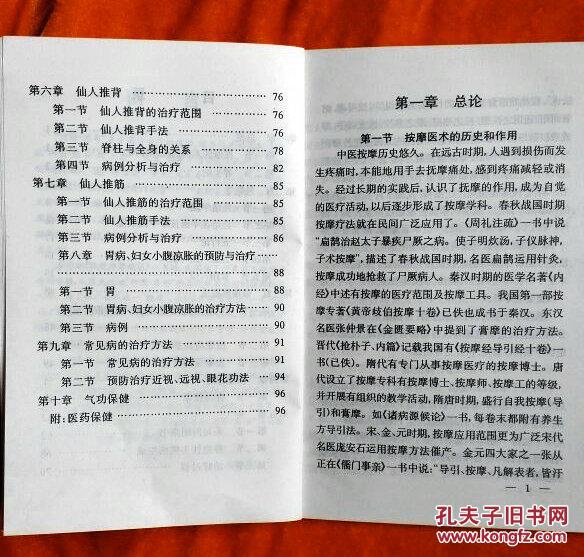 第六章 仙人推背 ………………………… 76
第一节 仙人推背的治疗范围 ………… 76
第二节 仙人推背手法 ………………… 76
第三节 脊柱与全身的关系 …………… 78
第四节 病例分析与治疗 ……………… 82
第七章 仙人推筋 ………………………… 85
第一节 仙人推筋的治疗范围 ………… 85
第二节 仙人推筋手法 ………………… 85
第三节 病例分析与治疗 ……………… 86
第八章 胃病、妇女小腹凉胀的预防与治疗……
………………………………………… 88
第一节 胃 ……………………………… 88
第二节 胃病、妇女小腹凉胀的治疗方法 90
第三节 病例 …………………………… 90
第九章 常见病的治疗方法 ……………… 91
第一节 常见病的治疗方法 …………… 91
第二节 预防治疗近视、远视、眼花功法 … 94
第十章 气功保健 ………………………… 96
附:医药保健 ……………………………… 96
第一章 总论
第一节 按摩医术的历史和作用
中医按摩历史悠久。在远古时期,人遇到损伤而发
生疼痛时,本能地用手去抚摩痛处,感到疼痛减轻或消
失。经过长期的实践后,认识了抚摩的作用,成为自觉
的医疗活动,以后逐步形成了按摩学科。春秋战国时期
按摩疗法就在民间广泛应用了。《周礼注疏》一书中说
“扁鹊治赵太子暴疾尸厥之病。使子明炊汤,子仪脉神,
子术按摩”,描述了春秋战国时期,名医扁鹊运用针灸、
按摩成功地抢救了尸厥病人。秦汉时期的医学名著《内
经》中述有按摩的医疗范围及按摩工具。我国第一部按
摩专著《黄帝歧伯按摩十卷》已佚也成书于秦汉。东汉
名医张仲景在《金匮要略》中提到了膏摩的治疗方法。
晋代《抢朴子、内篇》记载我国有《按摩经导引经十卷》一
书(已佚)。隋代有专门从事按摩医疗的按摩博士。唐
代设立了按摩专科有按摩博士、按摩师、按摩工的等级,
并开展有组织的教学活动,隋唐时期,盛行自我按摩(导
引)和膏摩。如《诸病源候论》一书,每卷末都附有养生
方导引法。宋、金、元时期,按摩应用范围更为广泛宋代
名医庞安石运用按摩方法催产。金元四大家之一张从
正在《儒门事亲》一书中说:“导引、按摩、凡解表者,皆汗
— 1 —
孔夫子旧书网
www.kongfz.com